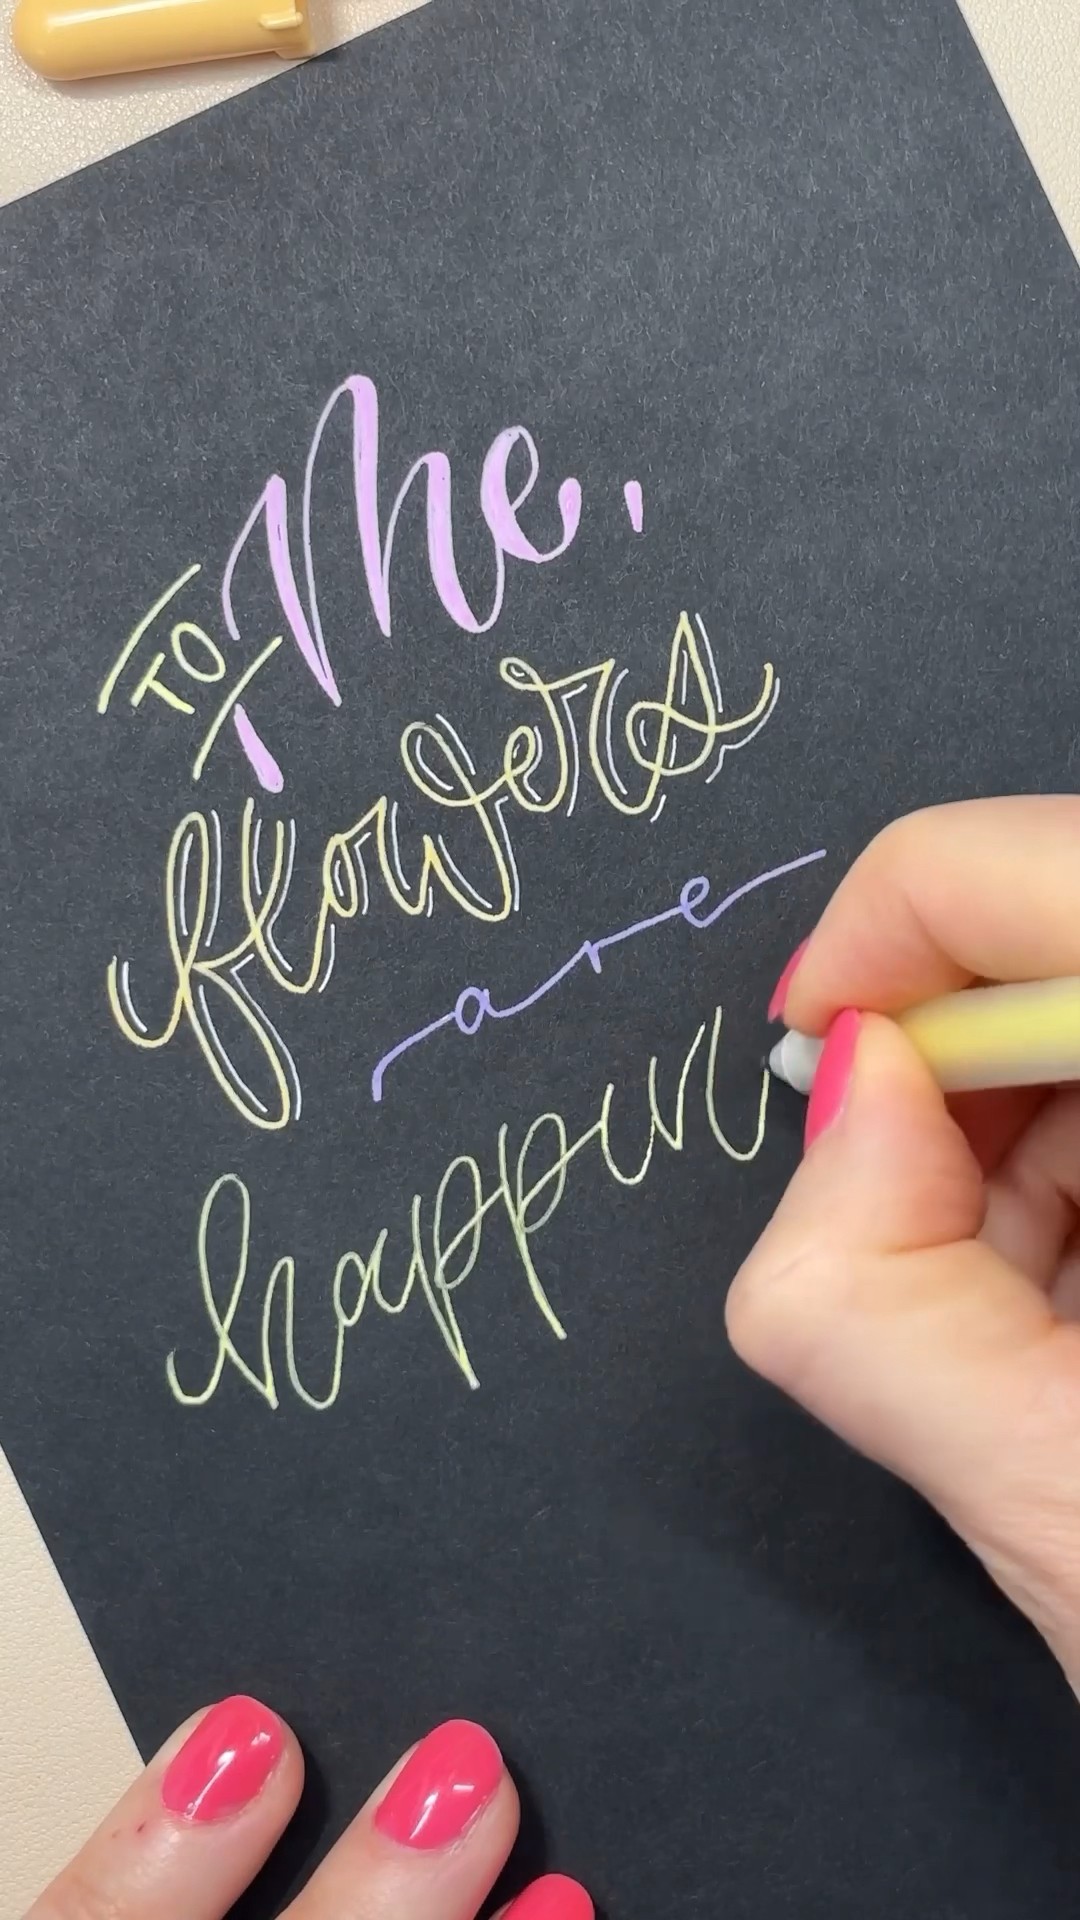 TO Me,
flowers
are
happin